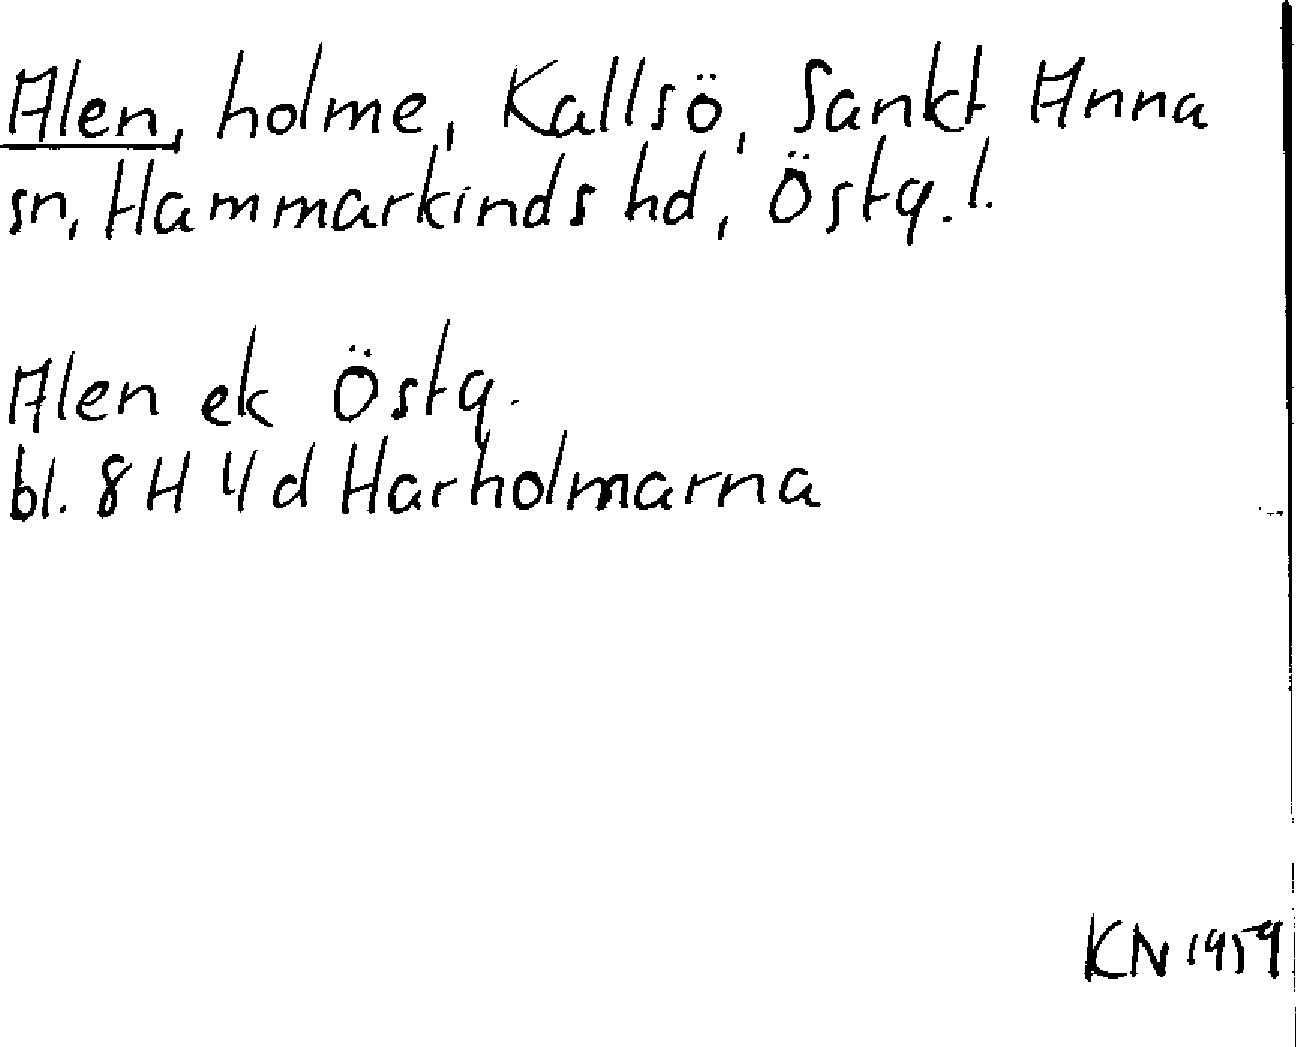 Alen, holme, Kallsö, Sankt Anna
sn, Hammarkinds hd, Östg. l.
Alen ek Östg.
bl. 8H 4d Harholmarna
KN 1959